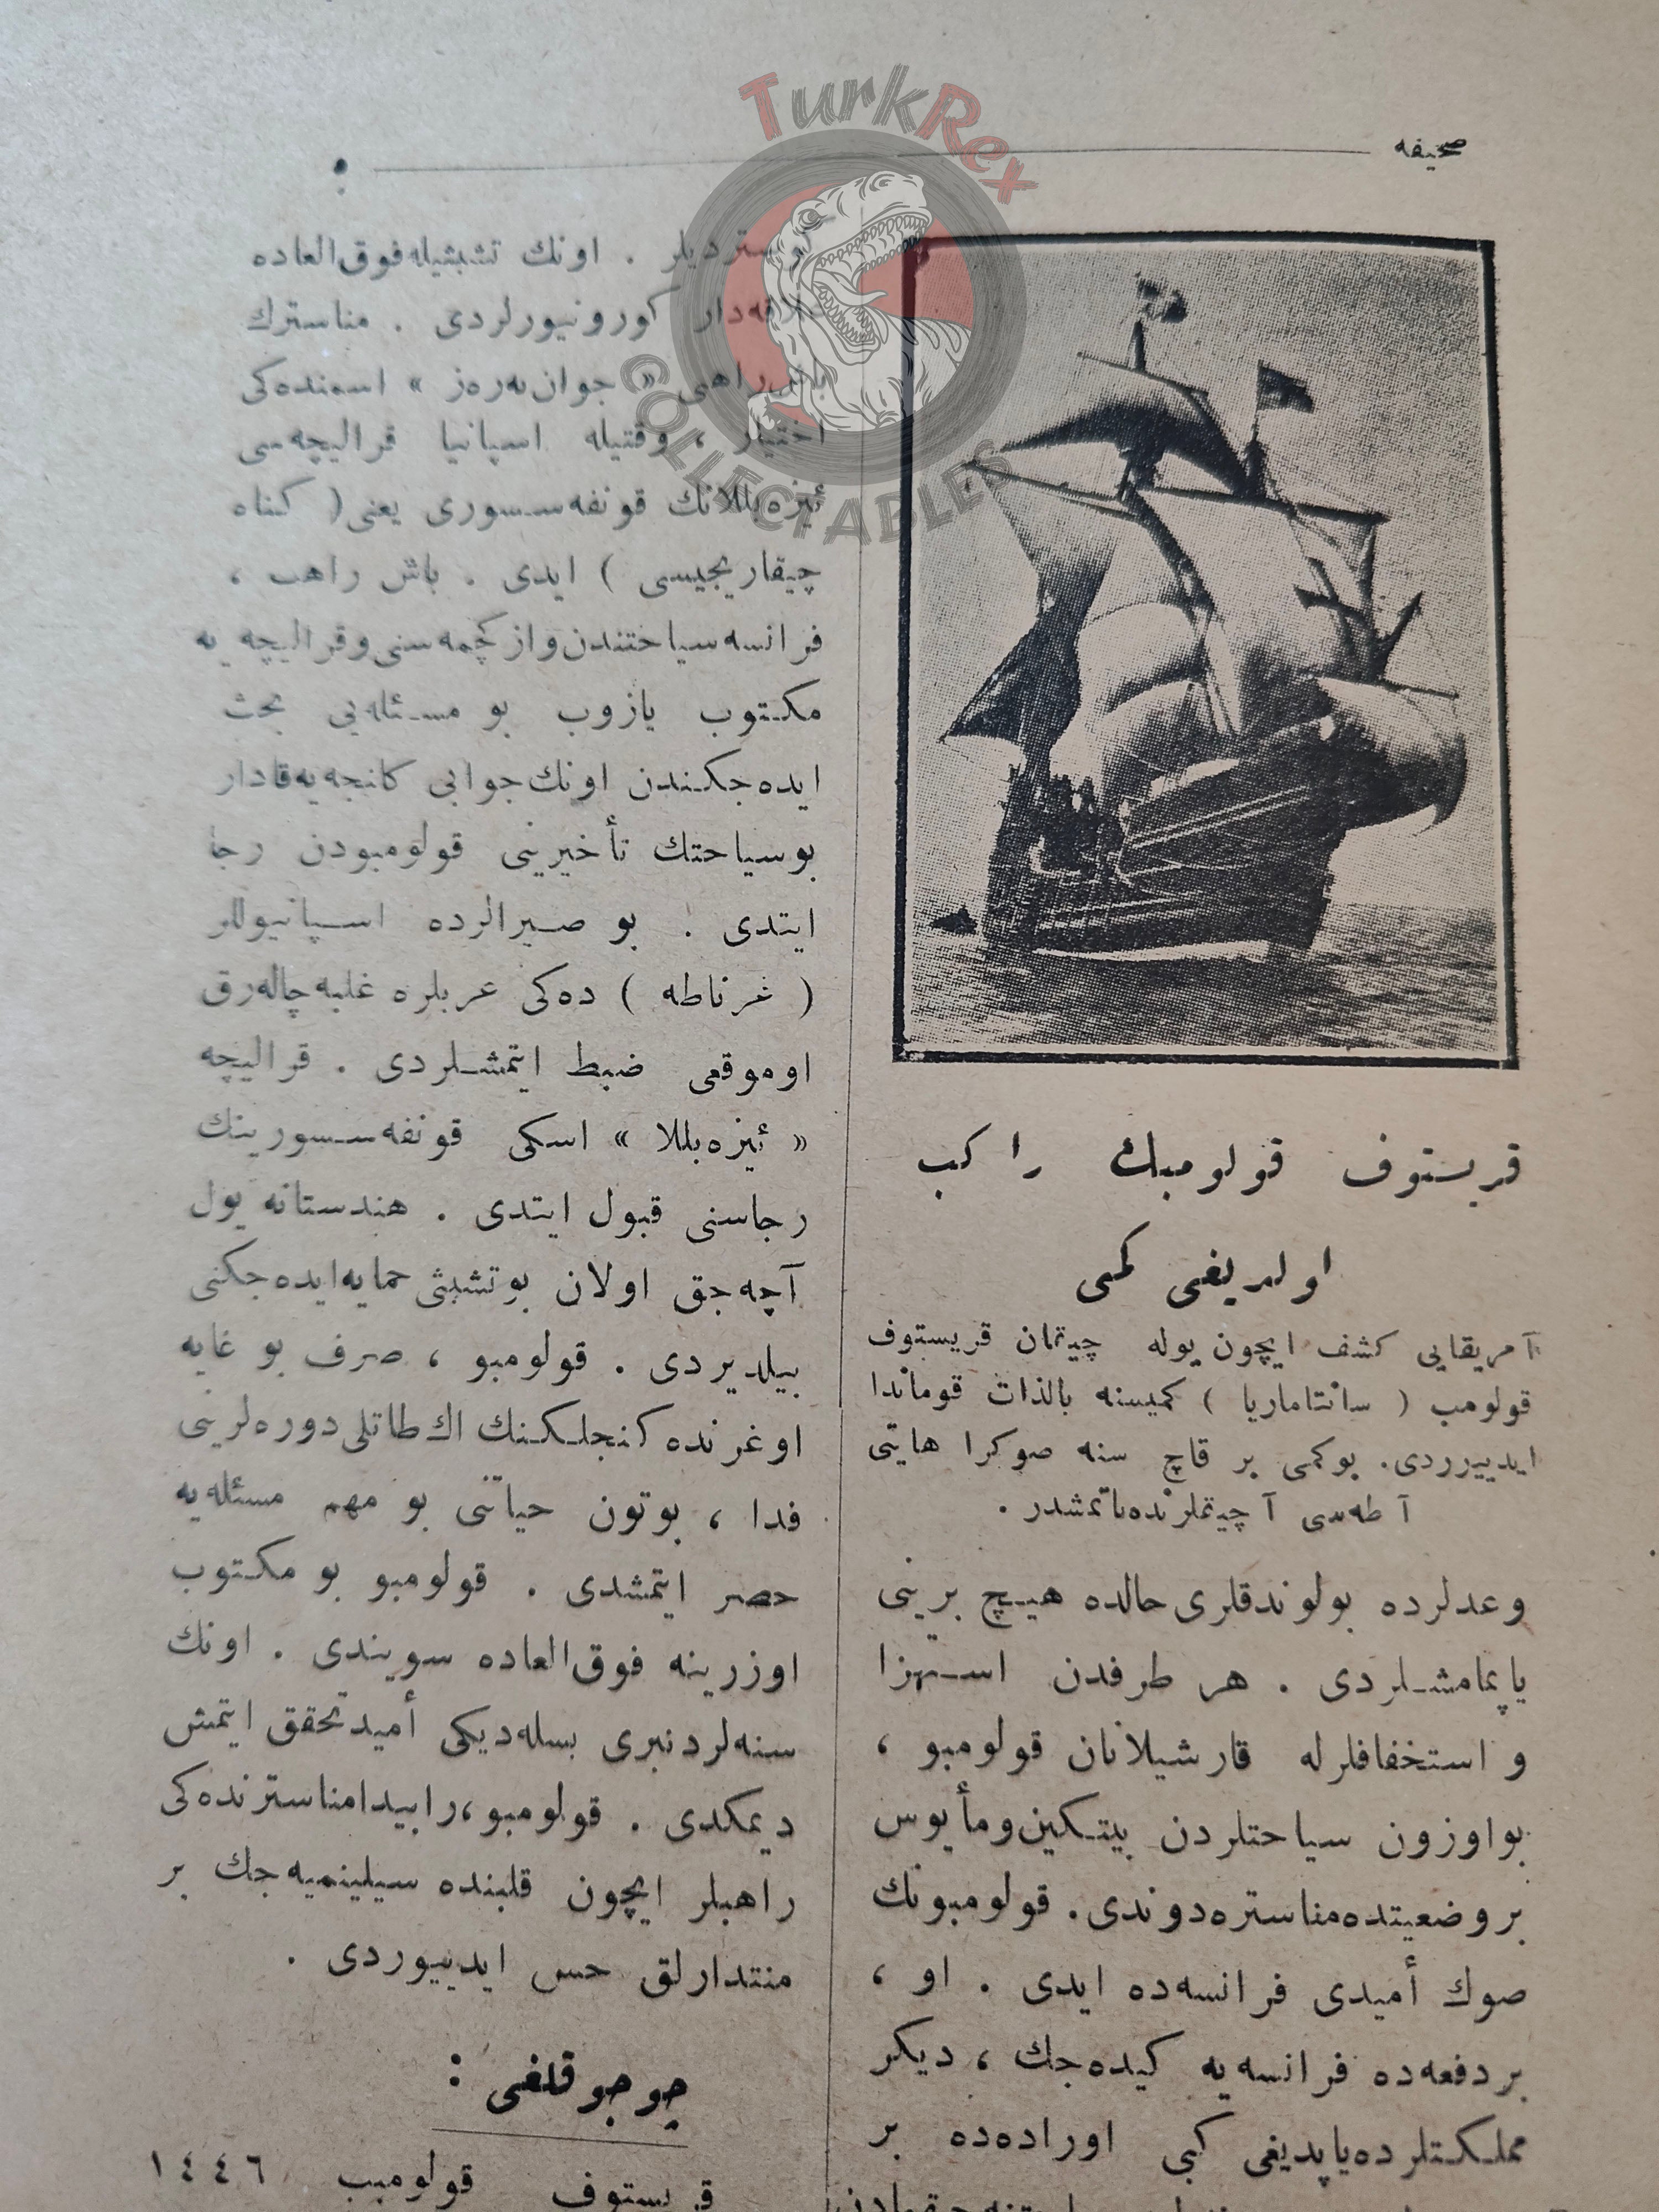 TurkRex
COLLECTABLES
صحيفه
قريستوف قولومبك راكب
اولديغى كمى
آمريقايى كشف ايچون يوله چيقان قريستوف
قولومب ( سانتاماريا ) كميسنه بالذات قوماندا
ايدييوردى. بوكمى بر قاچ سنه صوكرا هايتى
آطه‌سى آچيقلرنده‌باتمشدر .
وعدلرده بولوندقلرى حالده هيـچ برينى
ياپمامشـلردى . هر طرفدن اسـتهزا
و استخفافلرله قارشيلانان قولومبو ،
بواوزون سياحتلردن بيتـكين‌ومأيوس
بروضعيتده‌مناستره‌دوندى. قولومبونك
صوك أميدى فرانسه‌ده ايدى . او ،
بردفعه‌ده فرانسه‌يه كيده‌جك ، ديكر
مملـكـتلرده‌ياپديغى كبى اوراده‌ده بر
كوستردیلر . اونك تشبثيله‌فوق‌العاده
علاقه‌دار كورونيورلردى . مناسترك
باش‌راهبى « جوان‌پەرەز » اسمنده‌كى
اختيار ، وقتيله اسپانيا قراليچه‌سى
ئيزه‌بللانك قونفه‌سـسورى يعنى ( كناه
چيقاريجيسى ) ايدى . باش راهب ،
فرانسه سياحتندن‌واز كچمه‌سنى‌وقراليچه‌يه
مكـتوب يازوب بو مسـئله‌يى بحث
ايده‌جكـندن اونك‌جوابى كلنجه‌يه‌قادار
بوسياحتك تأخيرينى قولومبودن رجا
ايتدى . بو صـيرالرده اسـپانيوللر
( غرناطه ) ده‌كى عربلره غلبه‌چاله‌رق
اوموقعى ضبط ايتمشـلردى . قراليچه
« ئيزه‌بللا » اسكى قونفه‌سـسورينك
رجاسنى قبول ايتدى . هندستانه يول
آچه‌جق اولان بوتشبثى حمايه‌ايده‌جكنى
بيلديردى . قولومبو ، صرف بو غايه
اوغرنده كنجلـكـنك اك طاتلى دوره‌لرينى
فدا ، بوتون حياتنى بو مهم مسئله‌يه
حصر ايتمشدى . قولومبو بو مكـتوب
اوزرينه فوق‌العاده سويندى . اونك
سنه‌لردنبرى بسله‌ديكى أميد تحقق ايتمش
ديمكدى . قولومبو،رابيدامناسترنده‌كى
راهبلر ايچون قلبنده سيلينميه‌جك بر
منتدارلق حس ايدييوردى .
چوجوقلغى :
قريستوف قولومب ١٤٤٦